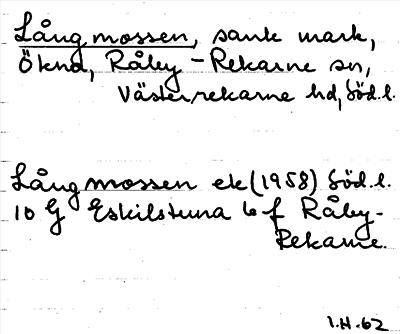 Långmossen, sank mark,
Öknd, Råby-Rekarne sn,
Västerrekarne hd, Söd.l.
Långmossen ek (1958) Söd.l.
10 G Eskilstuna 6 f Råby-
Rekarne.
1.H.62